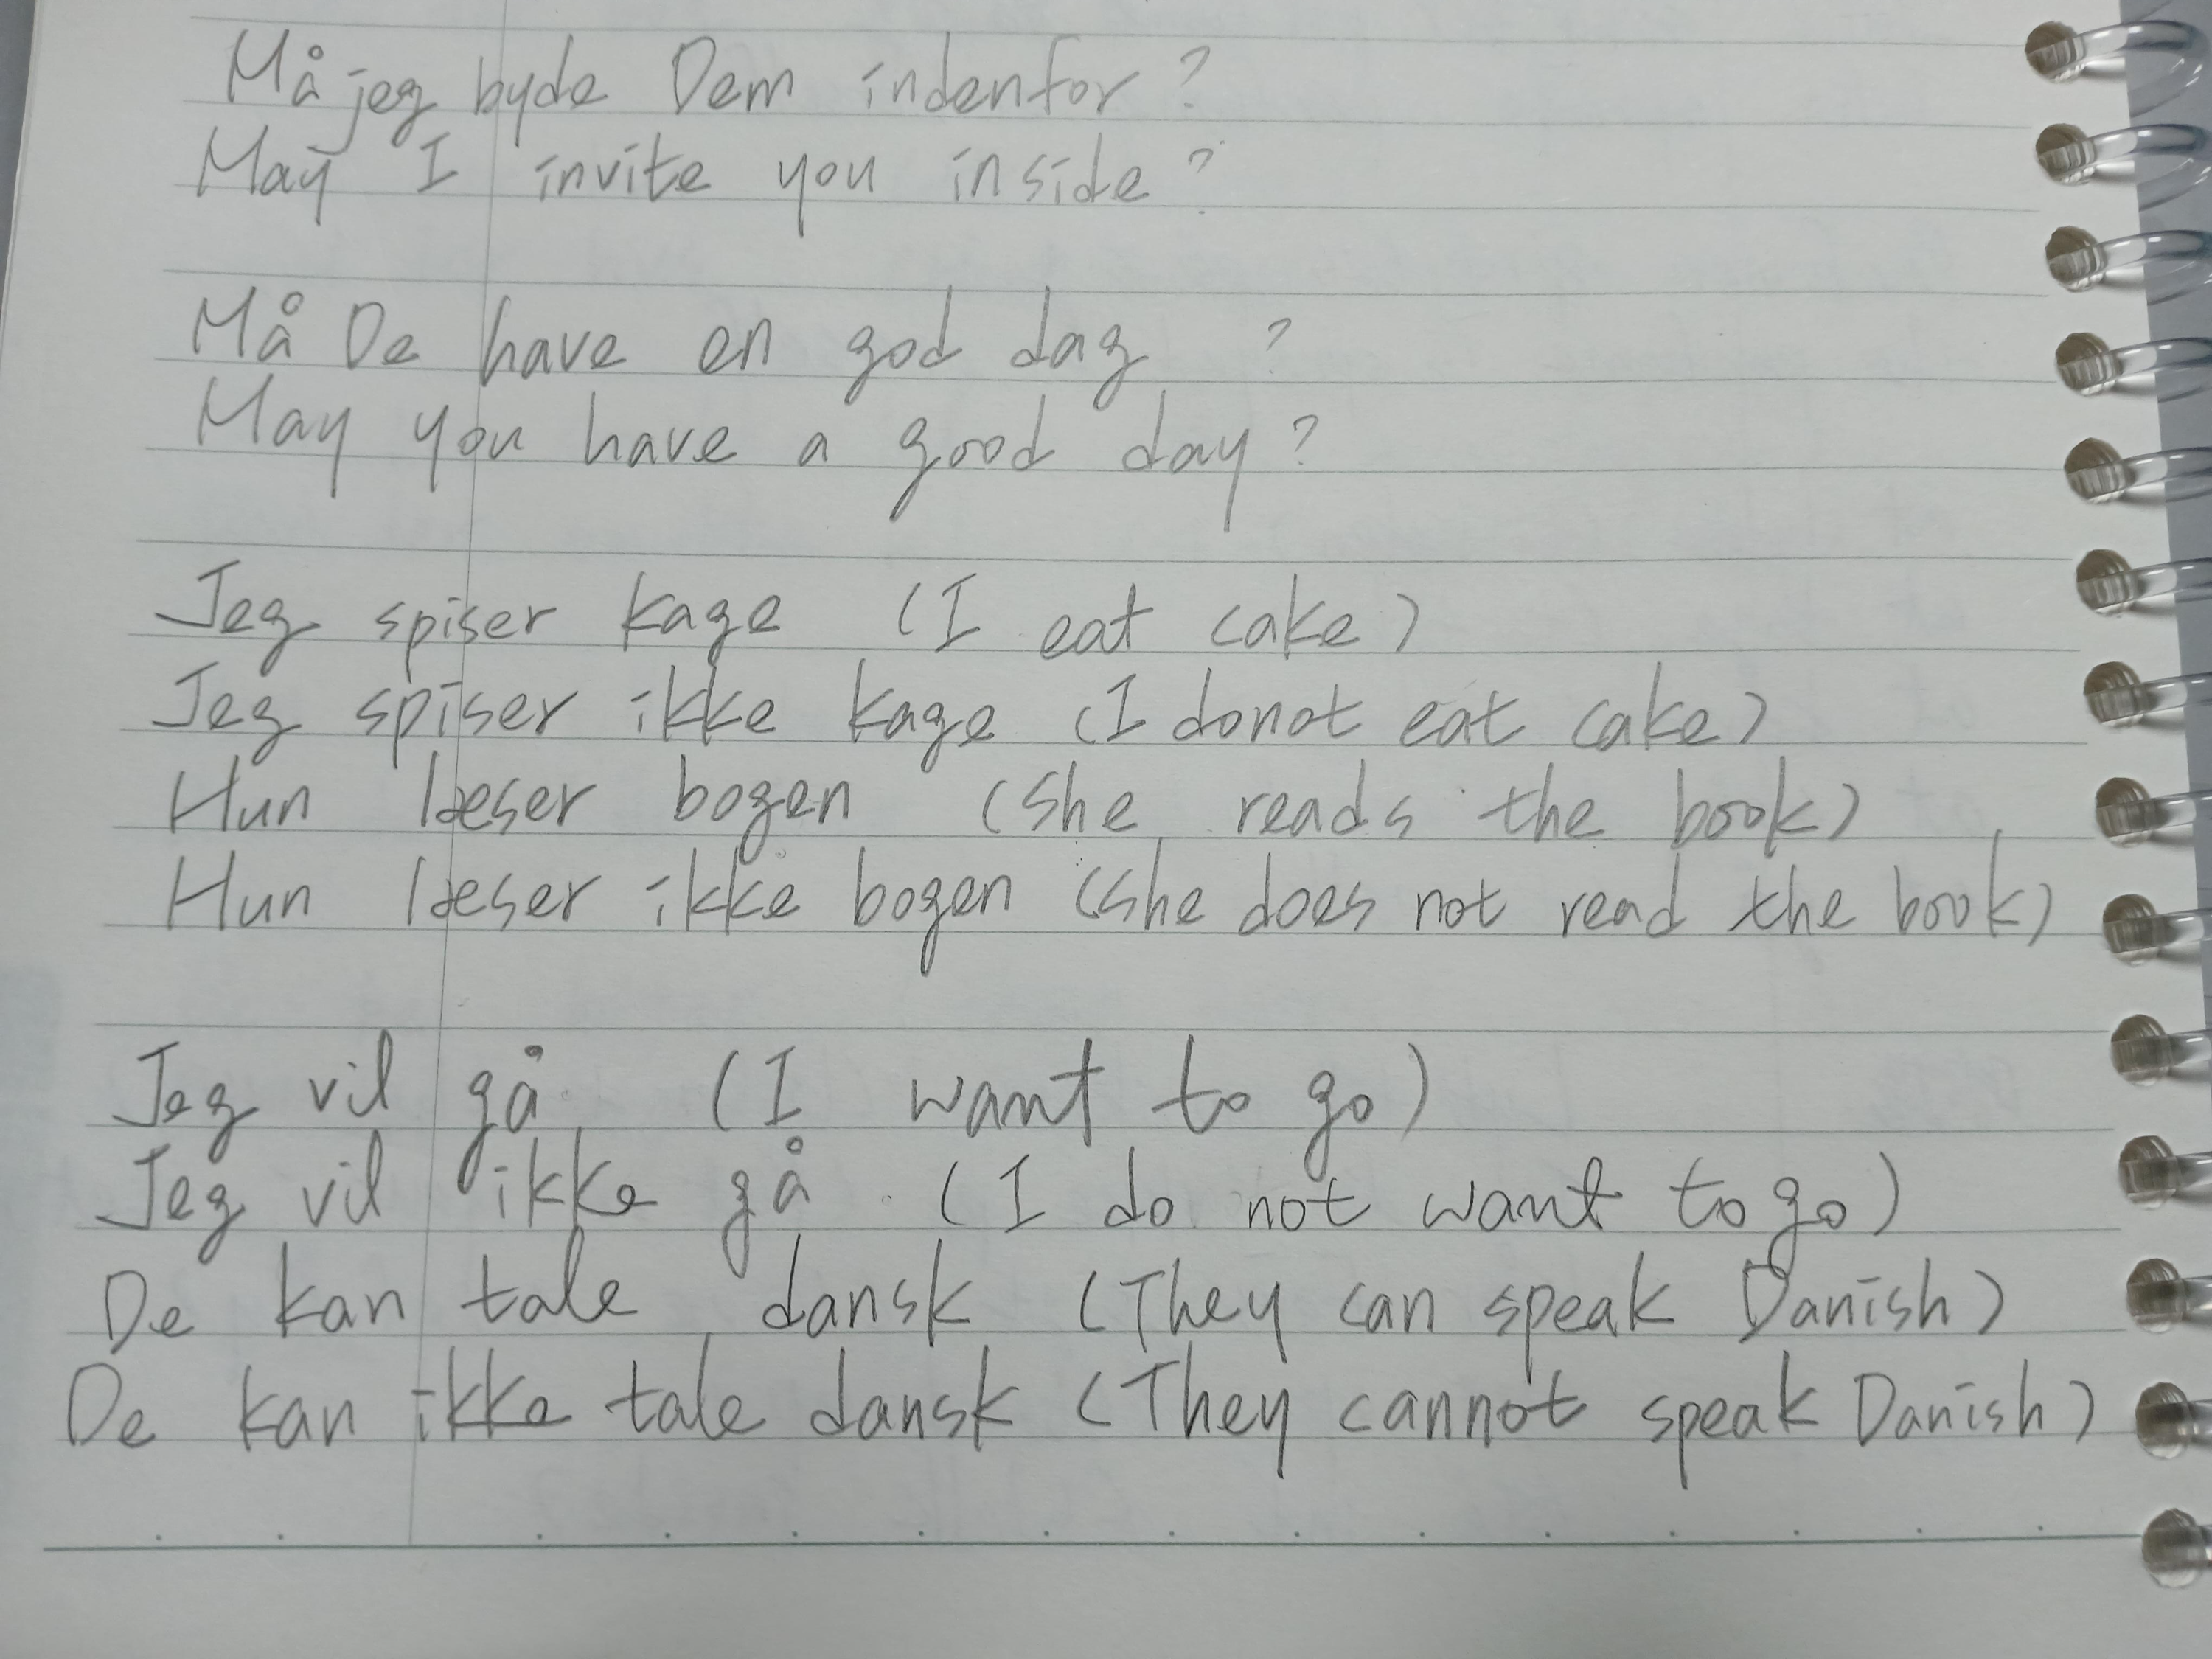 Må jeg byde Dem indenfor?
May I invite you inside?
Må De have en god dag ?
May you have a good day?
Jeg spiser kage (I eat cake)
Jeg spiser ikke kage (I donot eat cake)
Hun læser bogen (She reads the book)
Hun læser ikke bogen (She does not read the book)
Jeg vil gå (I want to go)
Jeg vil ikke gå (I do not want to go)
De kan tale dansk (They can speak Danish)
De kan ikke tale dansk (They cannot speak Danish)